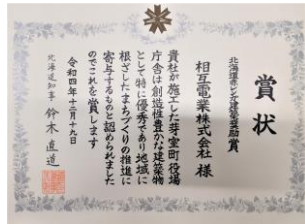 賞状
北海道赤レンガ建築奨励賞
相互電業株式会社 様
貴社が施工した芽室町役場
庁舎は創造性豊かな建築物
として特に優秀であり地域に
根ざしたまちづくりの推進に
寄与するものと認められました
のでこれを賞します
令和四年十二月十九日
北海道知事 鈴木直道